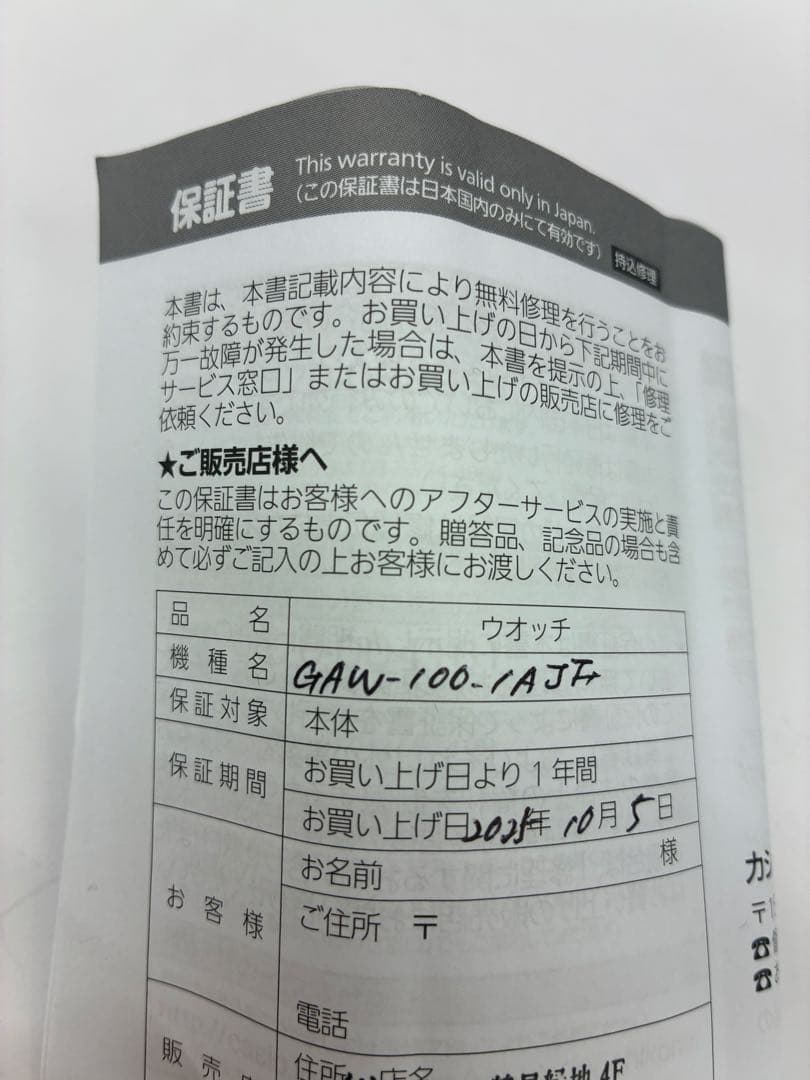 保証書
This warranty is valid only in Japan.
(この保証書は日本国内のみにて有効です)
持込修理
本書は、本書記載内容により無料修理を行うことをお
約束するものです。お買い上げの日から下記期間中に
万一故障が発生した場合は、本書を提示の上、「修理
サービス窓口」またはお買い上げの販売店に修理をご
依頼ください。
★ご販売店様へ
この保証書はお客様へのアフターサービスの実施と責
任を明確にするものです。贈答品、記念品の場合も含
めて必ずご記入の上お客様にお渡しください。
品名 ウオッチ
機種名 GAW-100-1AJF
保証対象 本体
保証期間 お買い上げ日より1年間
お買い上げ日2025年10月5日
お客様 お名前 様
ご住所 〒
電話
販売 住所 店名
緑地4F
カシ
〒1
☎
☎